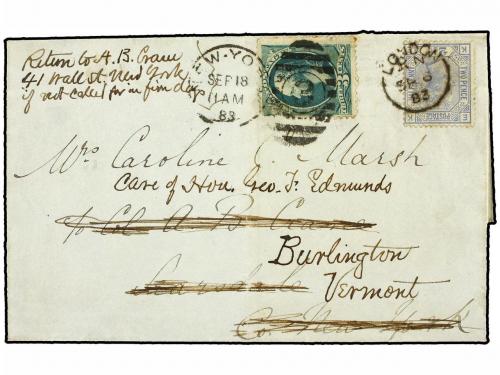 Return to A. B. Crane
41 Wall St. New York
if not called for in five days
NEW-YO
SEP 18
11 AM
83
LONDON
83
TWO PENCE
POSTAGE
Mrs Caroline C. Marsh
Care of Hon. Geo. F. Edmunds
c/o Col A B Crane
Burlington
Scarsdale
Vermont
Co. New York